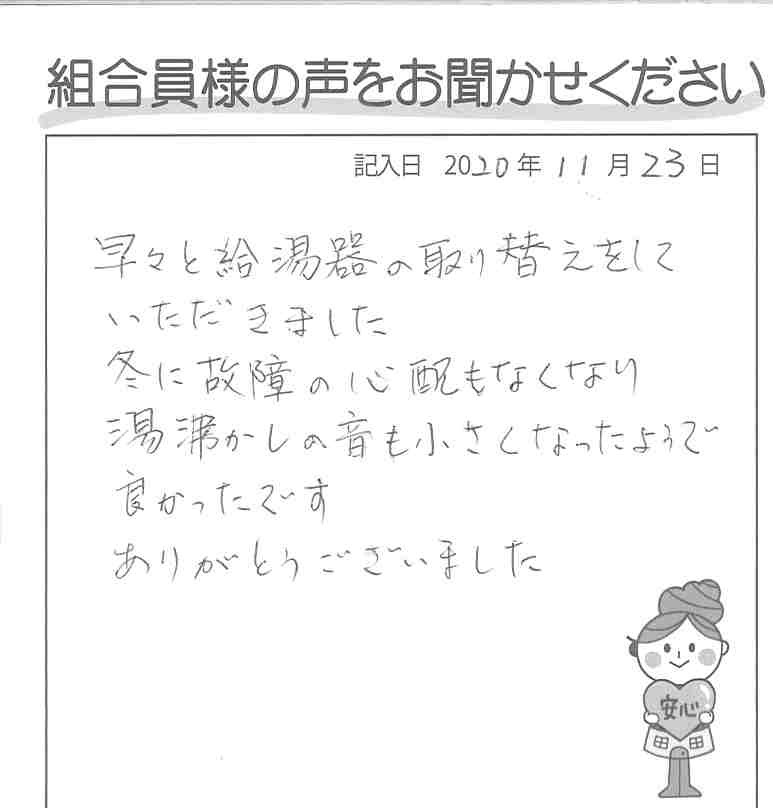 組合員様の声をお聞かせください
記入日 2020年 11月 23日
早々と給湯器の取り替えをして
いただきました
冬に故障の心配もなくなり
湯沸かしの音も小さくなったようで
良かったです
ありがとうございました
安心